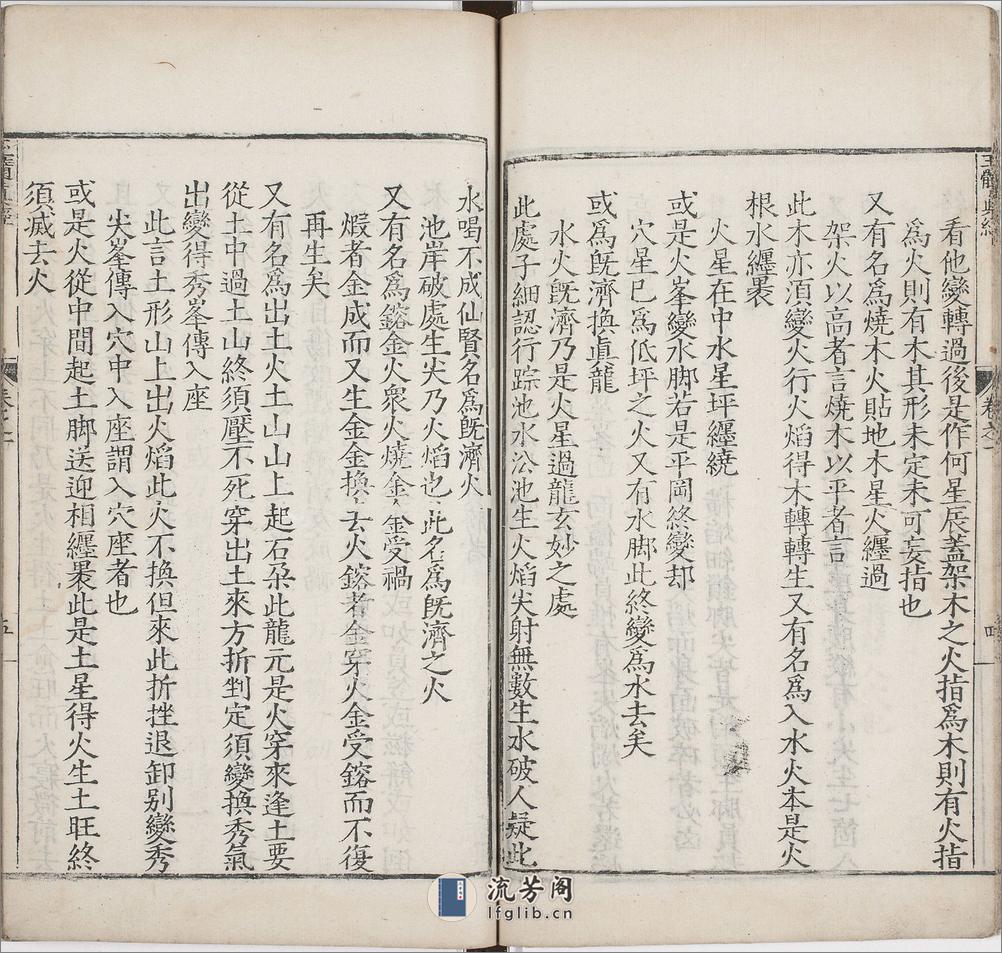 看他變轉過後是作何星辰蓋架木之火指爲木則有火指
爲火則有木其形未定未可妄指也
又有名爲燒木火貼地木星火纏過
架火以高者言燒木以平者言
此木亦湏變火行火熖得木轉轉生又有名爲入水火本是火
根水纏褁
火星在中水星坪纒繞
或是火峯變水脚若是平岡終變却
穴星巳爲低坪之火又有水脚此終變爲水去矣
或爲旣濟換眞龍
水火旣濟乃是火星過龍玄妙之處
此處子細認行踪池水㳂池生火熖尖射無數生水破人疑此
水喝不成仙賢名爲旣濟火
池岸破處生尖乃火熖也此名爲旣濟之火
又有名爲鎔金火衆火燒金金受禍
煅者金成而又生金金換去火鎔者金穿火金受鎔而不復
再生矣
又有名爲出土火土山山上起石朶此龍元是火穿來逢土要
從土中過土山終須壓不死穿出土來方折剉定須變換秀氣
出變得秀峯傳入座
此言土形山上出火熖此火不換但來此折挫退卸别變秀
尖峯傳入穴中入座謂入穴座者也
或是火從中間起土脚送迎相纒褁此是土星得火生土旺終
須滅去火
卷之一
四
五
流芳阁
lfglib.cn